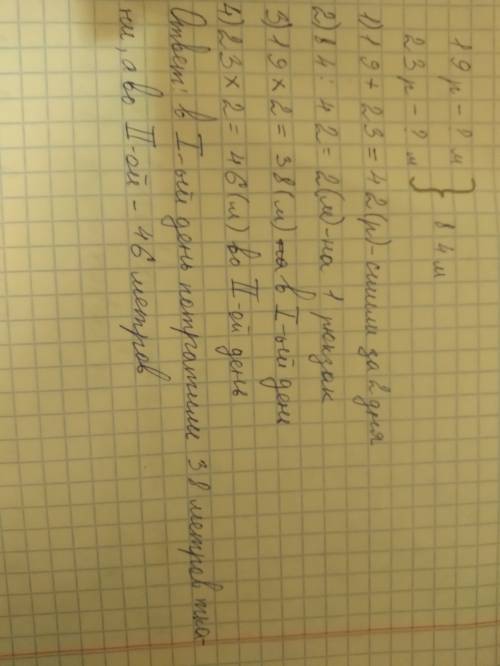 19 р - ? м
23 р - ? м } 84 м
1) 19 + 23 = 42 (р) - сшили за 2 дня
2) 84 : 42 = 2 (м) - на 1 рюкзак
3) 19 × 2 = 38 (м) в I-ый день
4) 23 × 2 = 46 (м) во II-ой день
Ответ: в I-ый день потратили 38 метров тка-
ни, а во II-ой - 46 метров